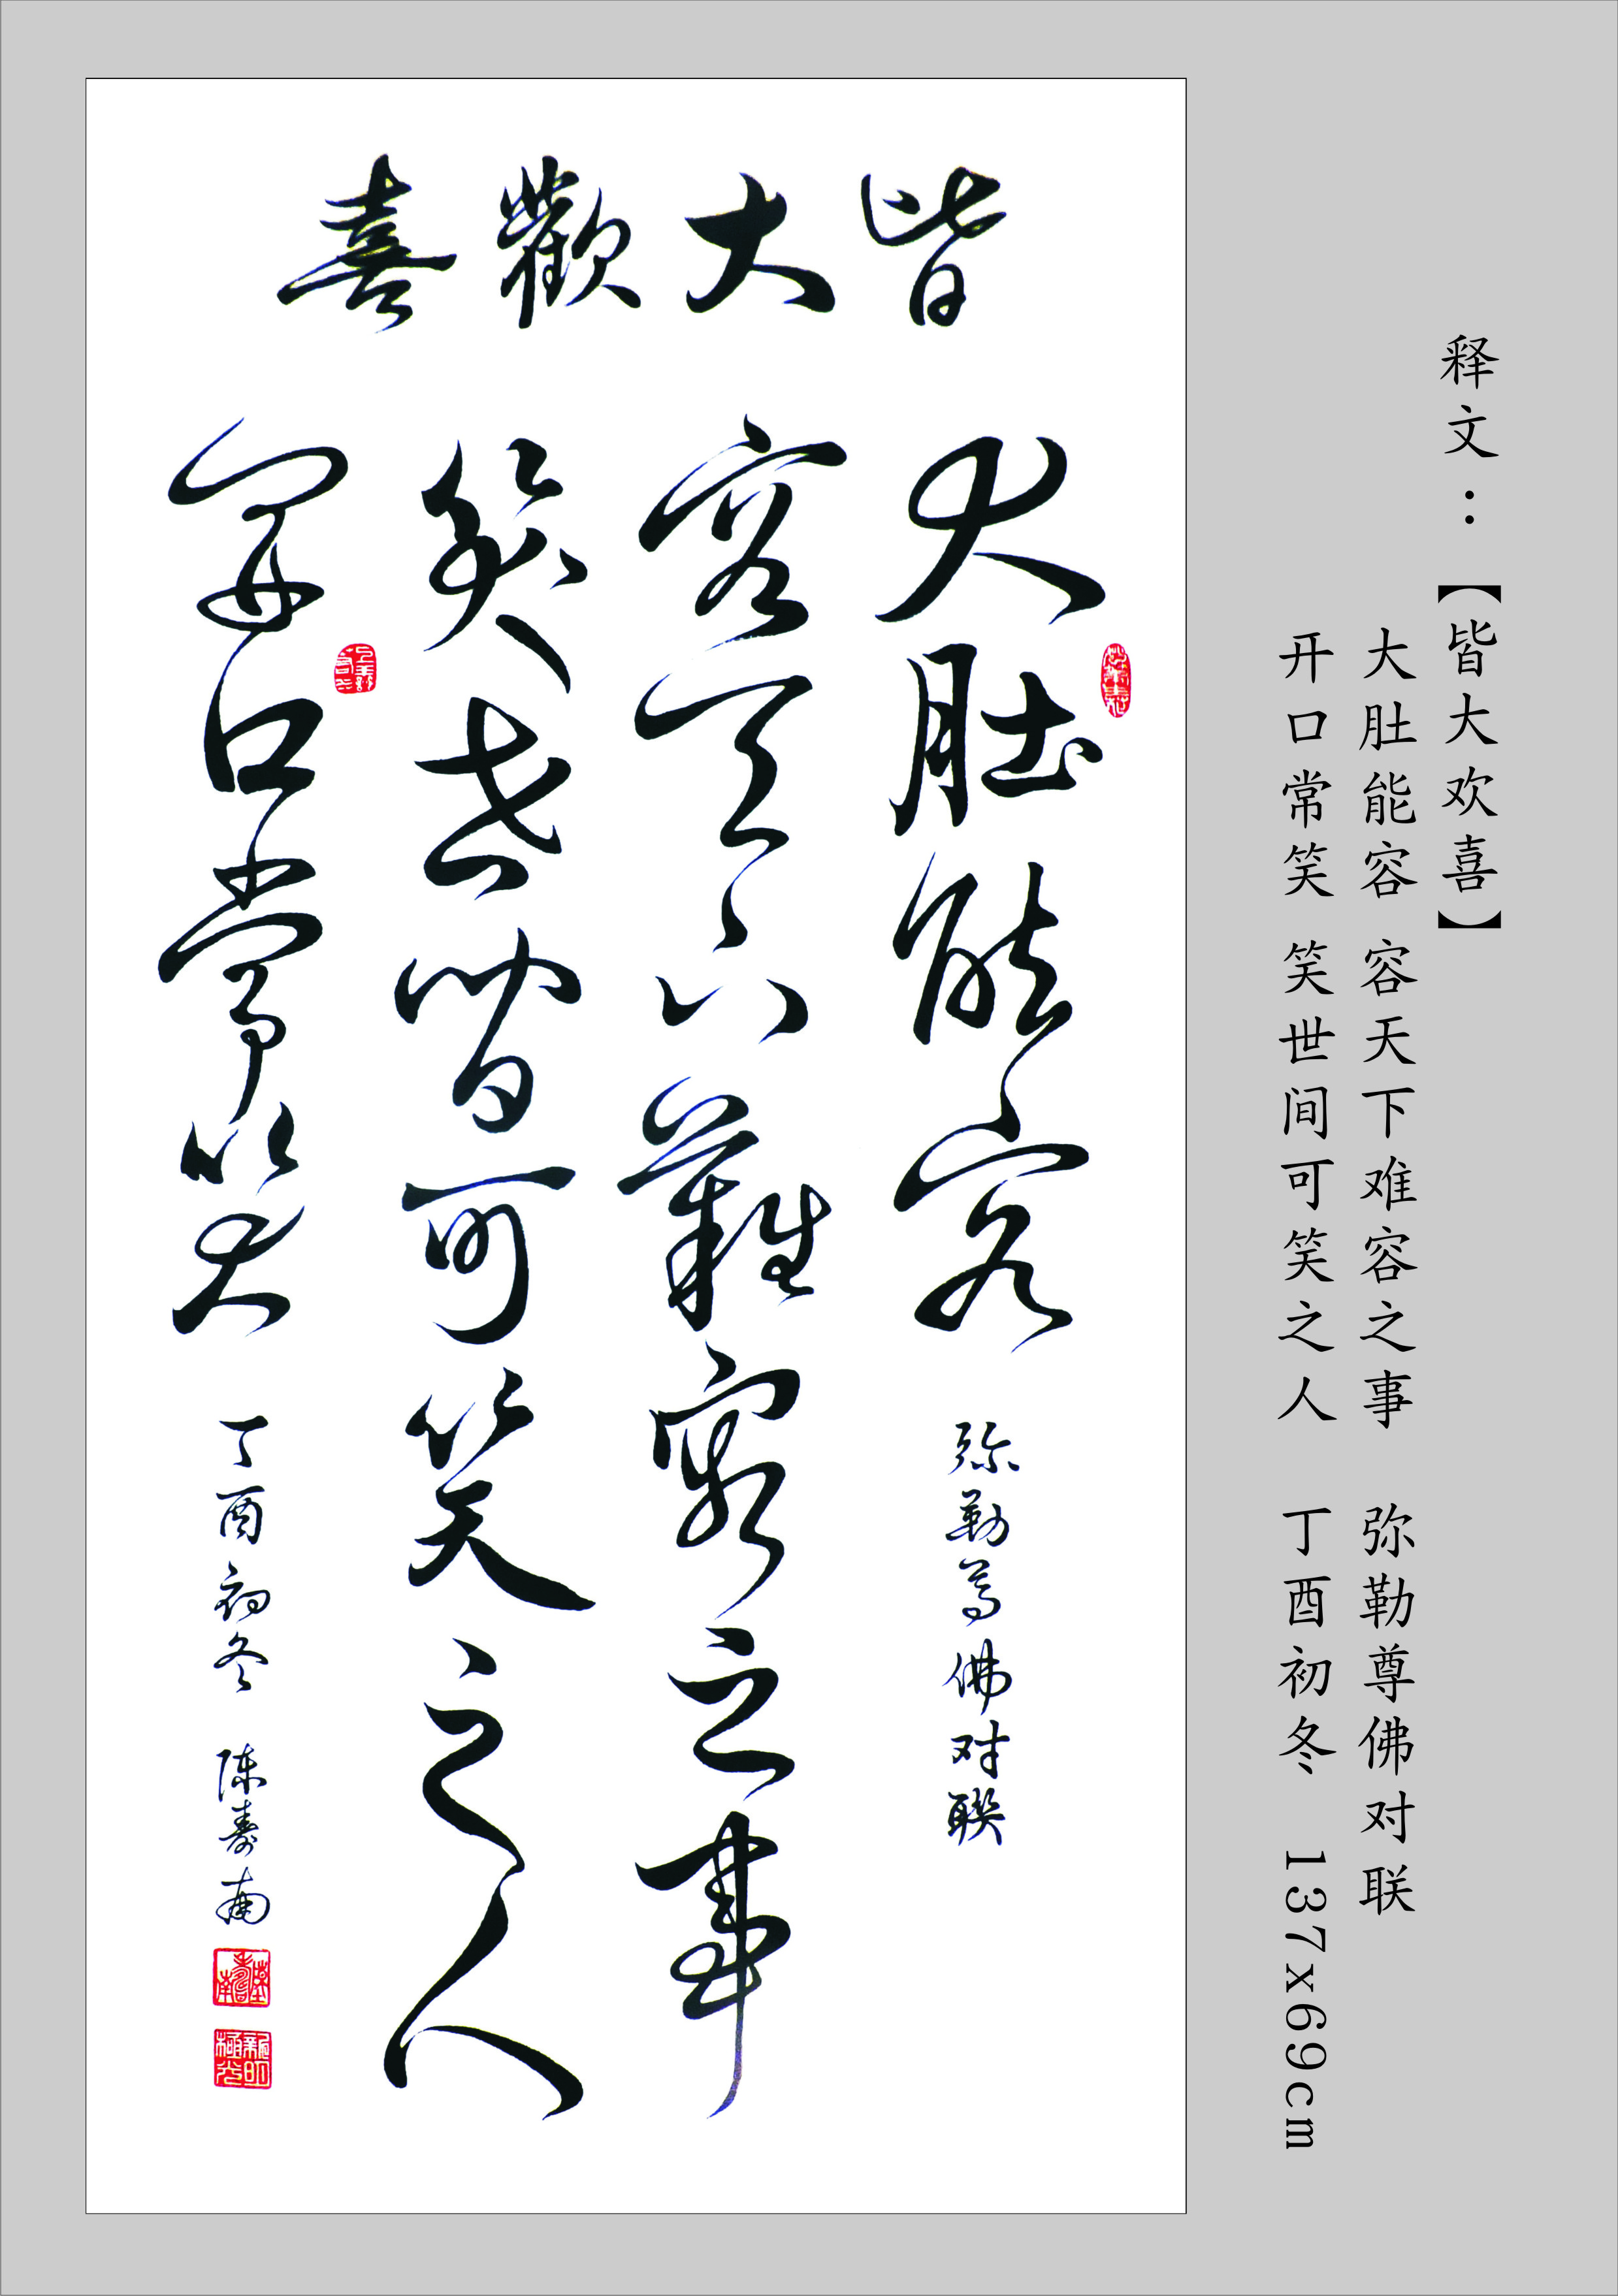 释文：【皆大欢喜】
大肚能容 容天下难容之事 弥勒尊佛对联
开口常笑 笑世间可笑之人 丁酉初冬 137x69cm
皆大歡喜
大肚能容
弥勒尊佛对联
容天下難容之事
笑世间可笑之人
開口常笑
丁酉初冬 陈寿南